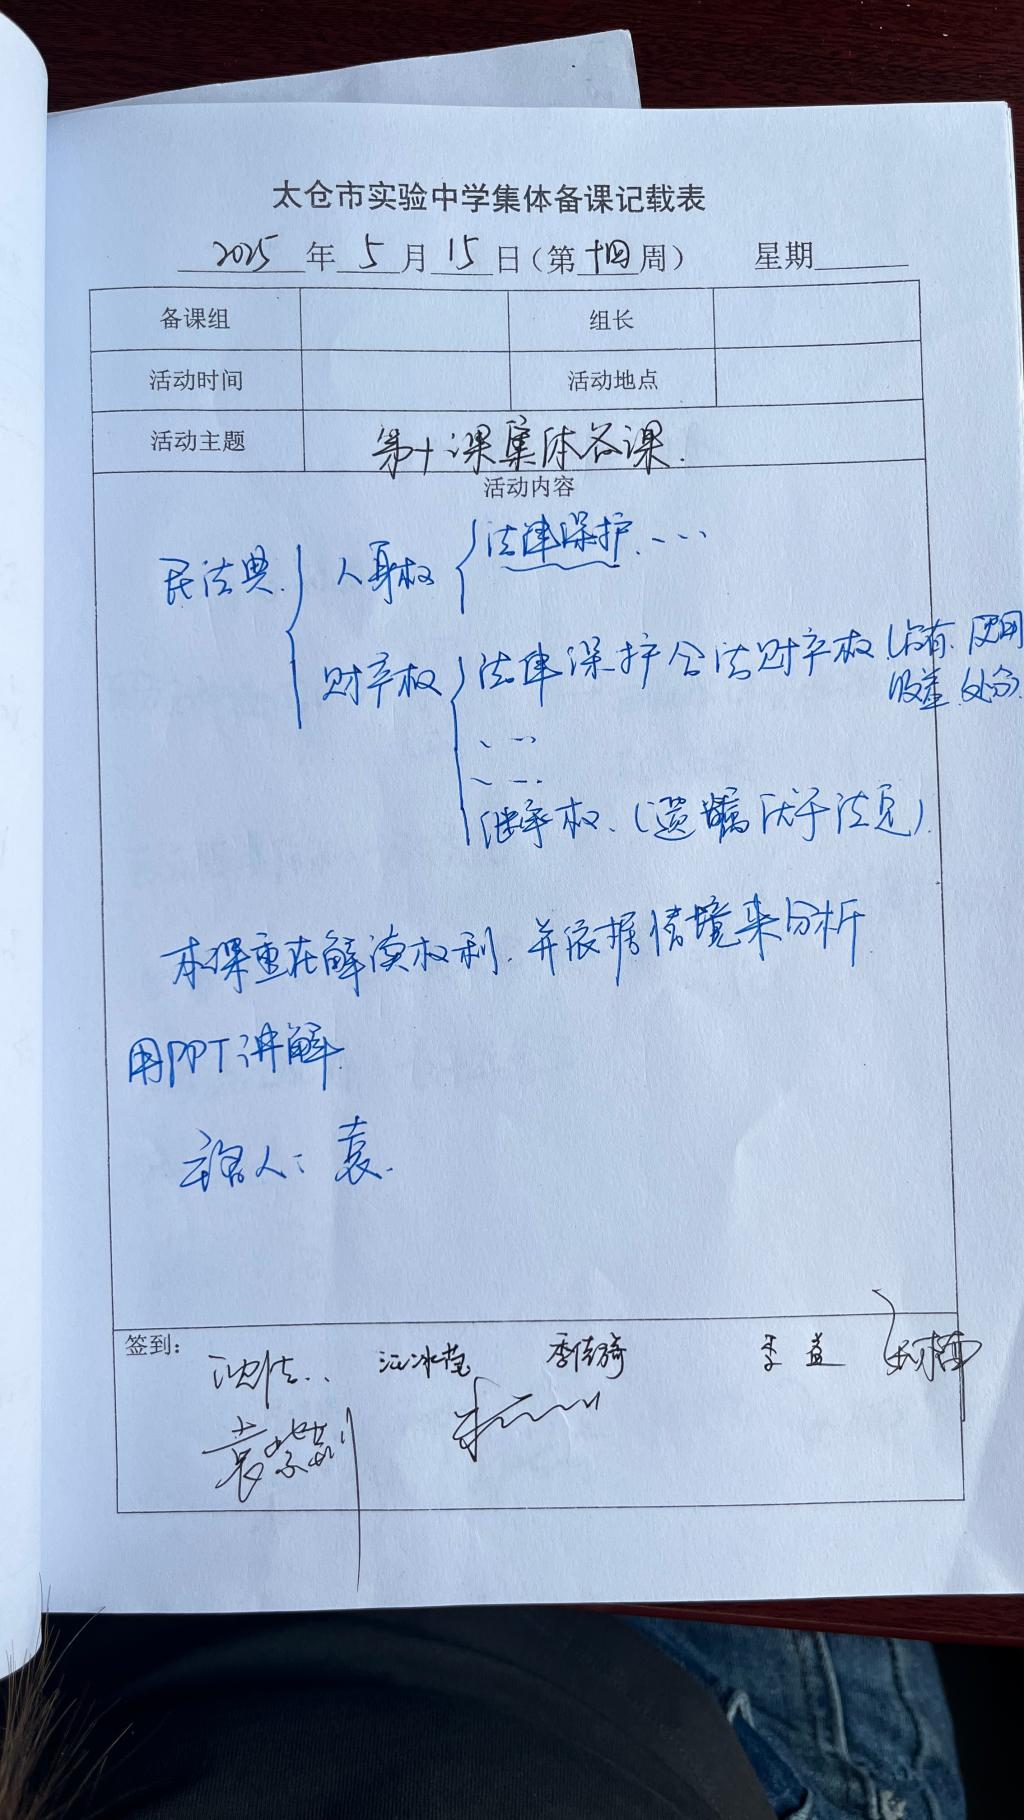 太仓市实验中学集体备课记载表
2025年5月15日(第十四周) 星期
备课组 组长
活动时间 活动地点
活动主题 第十课集体备课.
活动内容
民法典. 人身权 法律保护. ...
财产权 法律保护合法财产权(占有.使用
收益.处分)
... 
...
继承权.(遗嘱优于法定).
本课重在解读权利.并依据情境来分析
用PPT讲解.
主备人: 袁.
签到:
江冰莹 季倩琦 李益